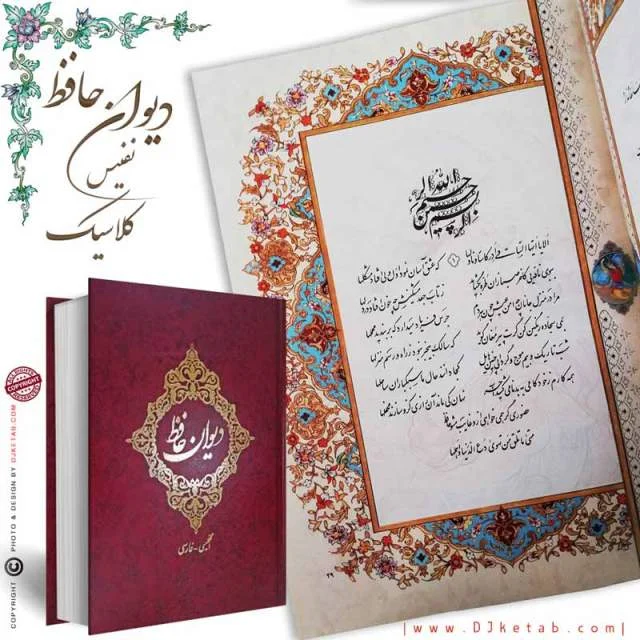 دیوان حافظ
نفیس
کلاسیک
بسم الله الرحمن الرحیم
الا یا ایها الساقی ادر کاسا و ناولها که عشق آسان نمود اول ولی افتاد مشکلها
ببوی نافه‌ای کاخر صبا زان طره بگشاید ز تاب جعد مشکینش چه خون افتاد در دلها
مرا در منزل جانان چه امن عیش چون هر دم جرس فریاد میدارد که بربندید محملها
بمی سجاده رنگین کن گرت پیر مغان گوید که سالک بیخبر نبود ز راه و رسم منزلها
شب تاریک و بیم موج و گردابی چنین هایل کجا دانند حال ما سبکباران ساحلها
همه کارم ز خودکامی به بدنامی کشید آخر نهان کی ماند آن رازی کزو سازند محفلها
حضوری گر همی خواهی ازو غایب مشو حافظ
متی ما تلق من تهوی دع الدنیا و اهملها
۲۹
دیوان حافظ
انگلیسی - فارسی
COPYRIGHT
COPYRIGHT © PHOTO & DESIGN BY DJKETAB.COM
|www.DJketab.com|